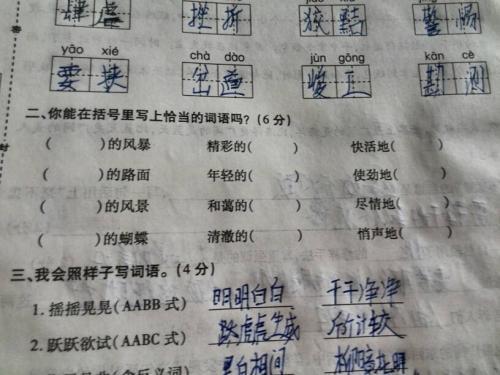 yāo xié chà dào jùn gōng kān cè
要挟 岔道 工 勘测
二、你能在括号里写上恰当的词语吗？(6 分)
( )的风暴 精彩的( ) 快活地( )
( )的路面 年轻的( ) 使劲地( )
( )的风景 和蔼的( ) 尽情地( )
( )的蝴蝶 清澈的( ) 悄声地( )
三、我会照样子写词语。(4 分)
1. 摇摇晃晃(AABB 式) 明明白白 干干净净
2. 跃跃欲试(AABC 式) 虎虎生威 斤斤计较
黑白相间 柳暗花明